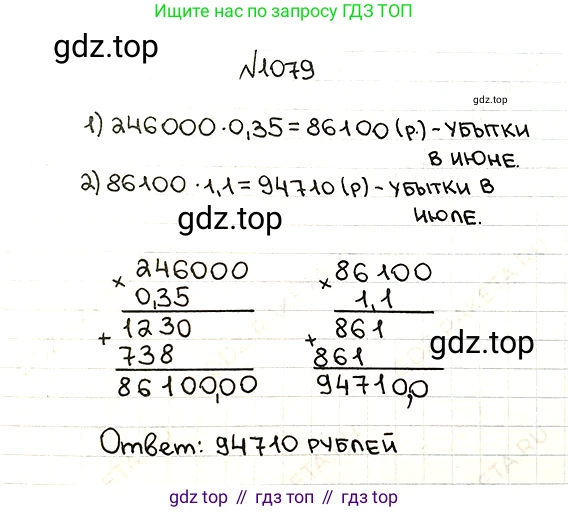 Ищите нас по запросу ГДЗ ТОП
gdz.top
№1079
gdz.top
1) 246000·0,35=86100(р.)-убытки
в июне.
2) 86100·1,1=94710(р)-убытки в
июле.
gdz.top
× 246000
0,35
+ 1230
738
86100,00
× 86100
1,1
+ 861
861
94710,0
gdz.top
Ответ: 94710 рублей
gdz.top // гдз топ // gdz top // гдз.топ